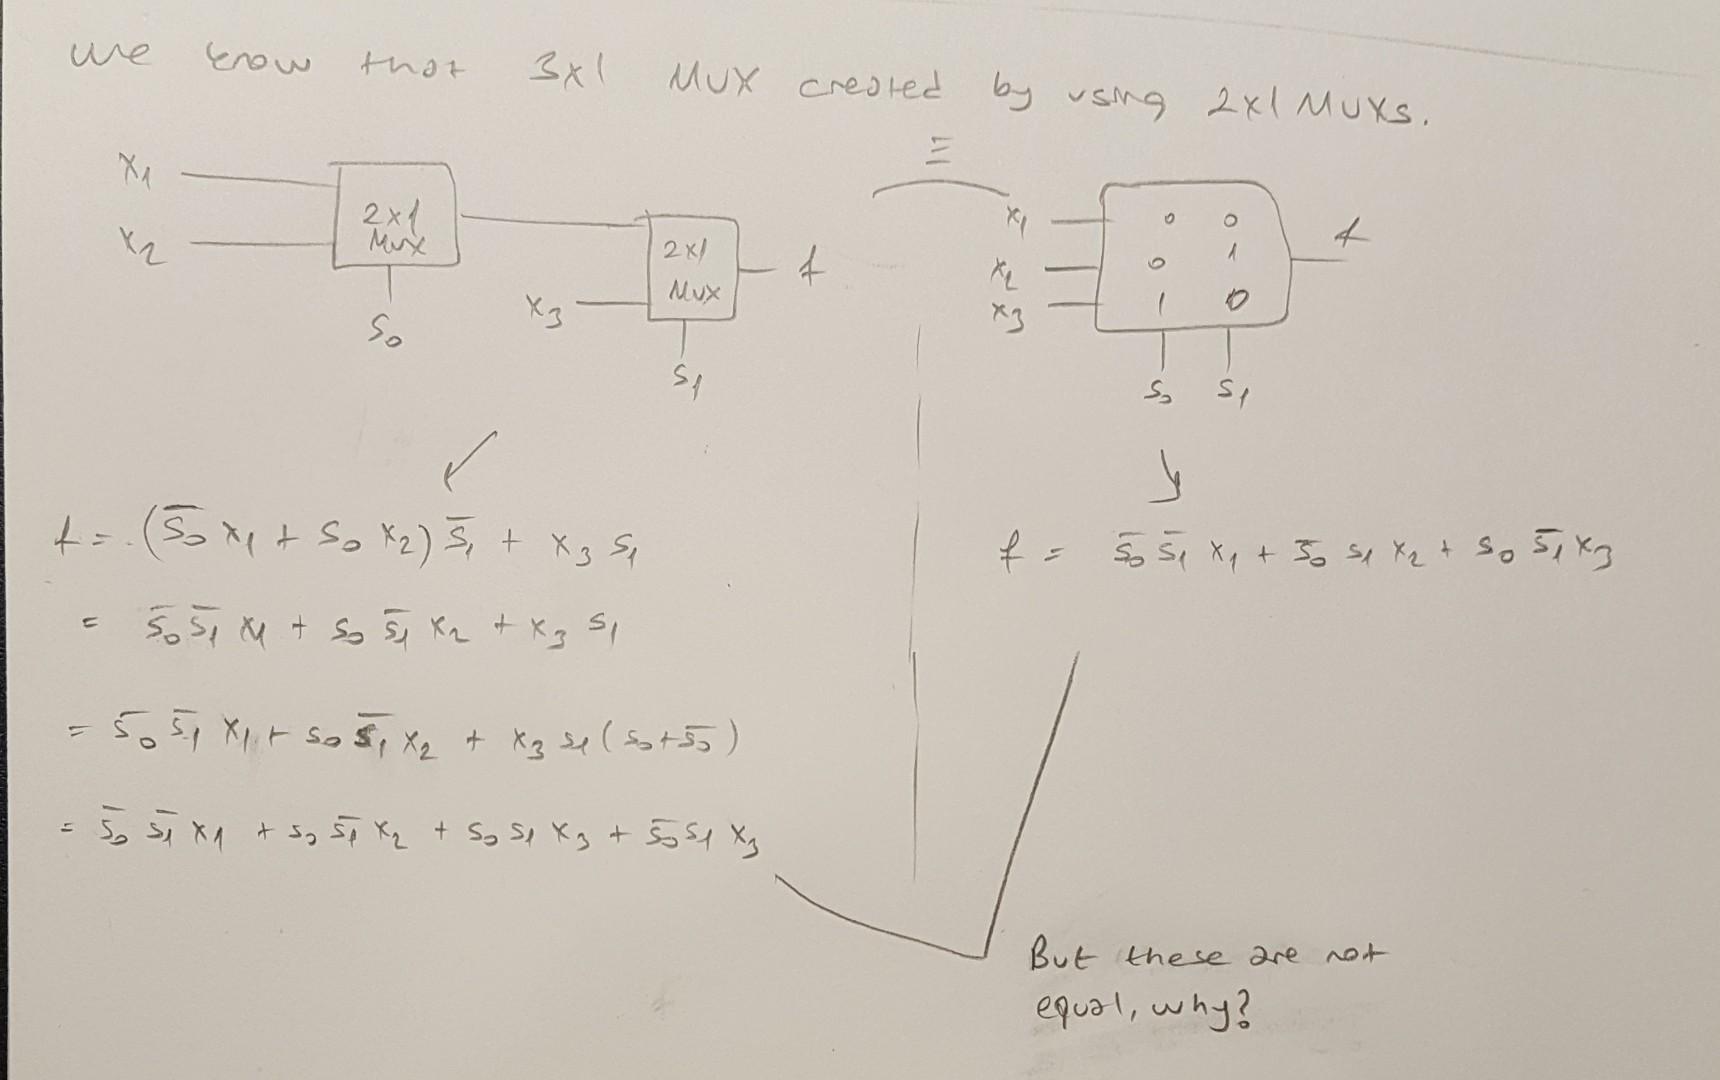 we know that 3x1 MUX created by using 2x1 MUXs.
≡
x1
x2
2x1
Mux
S0
x3
2x1
MUX
S1
f
x1
x2
x3
0 0
0 1
1 0
S0 S1
f
f = (S̅0 x1 + S0 x2) S̅1 + x3 S1
= S̅0 S̅1 x1 + S0 S̅1 x2 + x3 S1
= S̅0 S̅1 x1 + S0 S̅1 x2 + x3 S1 (S0 + S̅0)
= S̅0 S̅1 x1 + S0 S̅1 x2 + S0 S1 x3 + S̅0 S1 x3
f = S̅0 S̅1 x1 + S̅0 S1 x2 + S0 S̅1 x3
But these are not
equal, why?